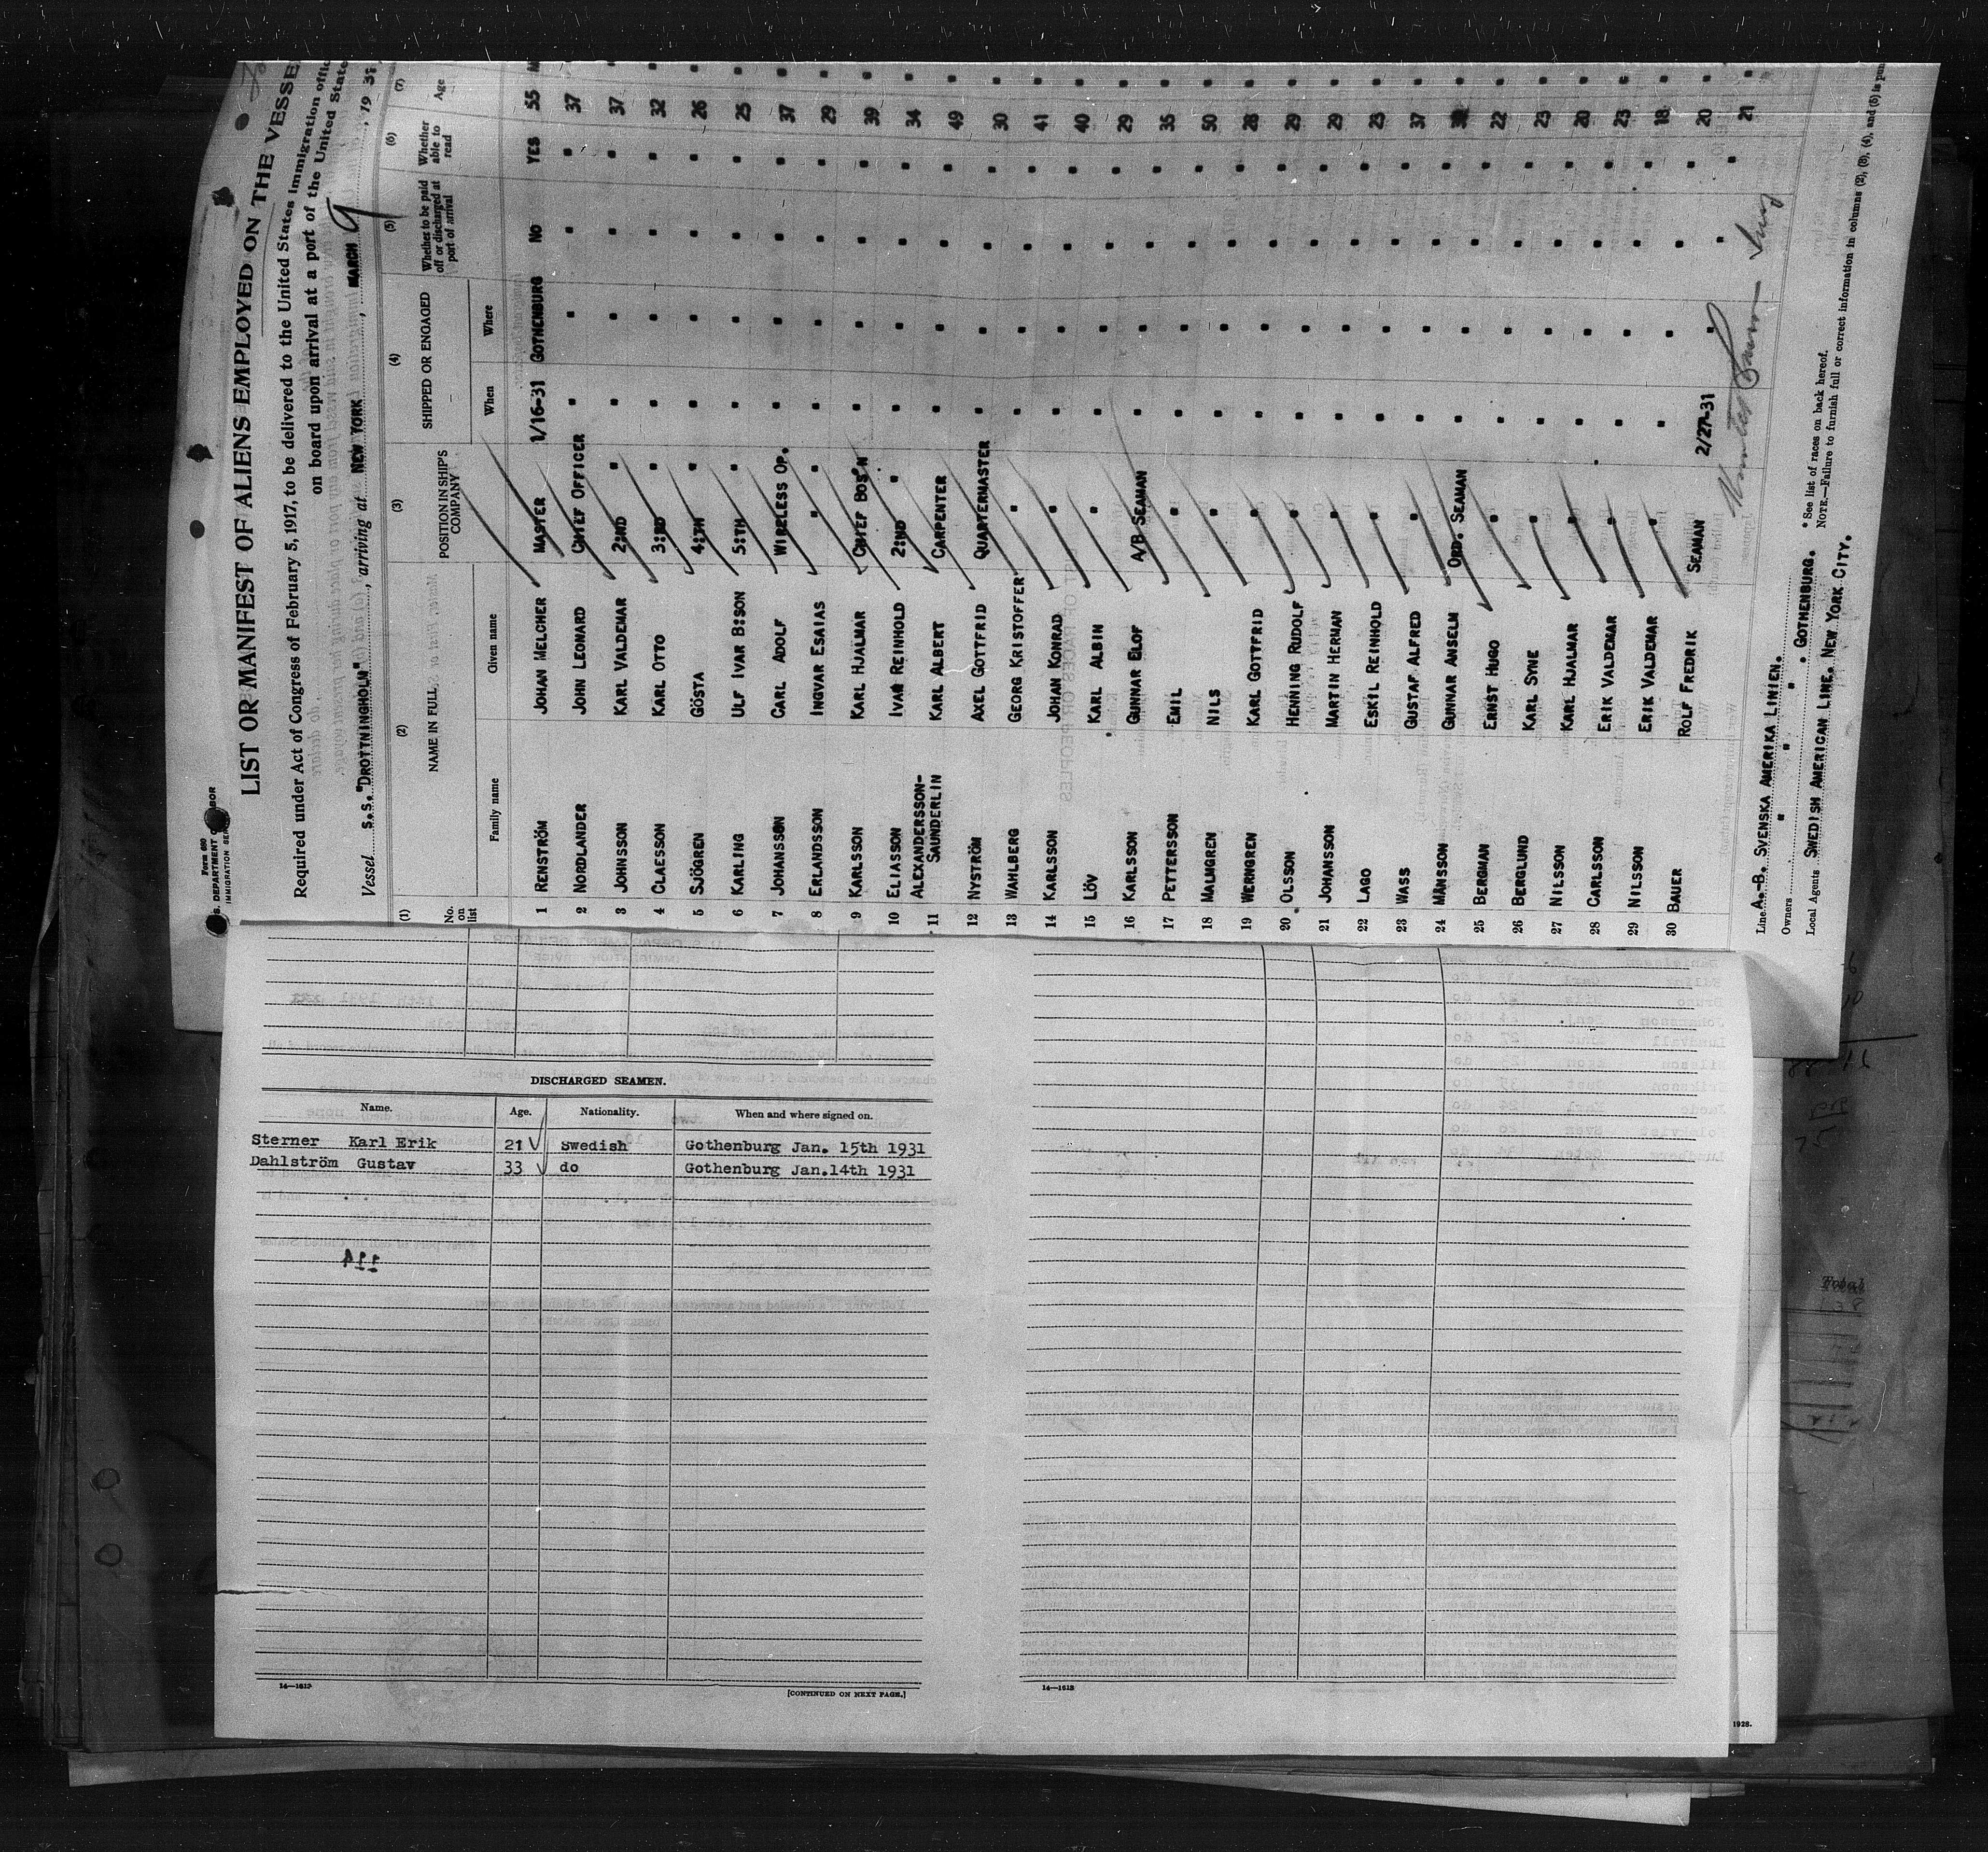 Form 680
S. DEPARTMENT OF LABOR
IMMIGRATION SER
LIST OR MANIFEST OF ALIENS EMPLOYED ON THE VESSE
Required under Act of Congress of February 5, 1917, to be delivered to the United States immigration offic
on board upon arrival at a port of the United State
Vessel S.S. "DROTTNINGHOLM", arriving at NEW YORK, MARCH 9, 1931
(1) (2) (3) (4) (5) (6) (7)
No. on list NAME IN FULL POSITION IN SHIP'S COMPANY SHIPPED OR ENGAGED Whether to be paid off or discharged at port of arrival Whether able to read Age
Family name Given name When Where
1 RENSTRÖM JOHAN MELCHER MASTER 1/16-31 GOTHENBURG NO YES 55
2 NORDLANDER JOHN LEONARD CHIEF OFFICER " " " " 37
3 JOHNSSON KARL VALDEMAR 2:ND " " " " " 37
4 CLAESSON KARL OTTO 3:RD " " " " " 32
5 SJÖGREN GÖSTA 4:TH " " " " " 26
6 KARLING ULF IVAR B:SON 5:TH " " " " " 25
7 JOHANSSON CARL ADOLF WIRELESS OP. " " " " 37
8 ERLANDSSON INGVAR ESAIAS " " " " " " 29
9 KARLSSON KARL HJALMAR CHIEF BOS'N " " " " 39
10 ELIASSON IVAR REINHOLD 2:ND " " " " " 34
11 ALEXANDERSSON-SAUNDERLIN KARL ALBERT CARPENTER " " " " 49
12 NYSTRÖM AXEL GOTTFRID QUARTERMASTER " " " " 30
13 WAHLBERG GEORG KRISTOFFER " " " " " 41
14 KARLSSON JOHAN KONRAD " " " " " 40
15 LÖV KARL ALBIN " " " " " 29
16 KARLSSON GUNNAR ELOF A/B SEAMAN " " " " 35
17 PETTERSSON EMIL " " " " " 50
18 MALMGREN NILS " " " " " 28
19 WERNGREN KARL GOTFRID " " " " " 29
20 OLSSON HENNING RUDOLF " " " " " 29
21 JOHANSSON MARTIN HERMAN " " " " " 25
22 LAGO ESKIL REINHOLD " " " " " 37
23 WASS GUSTAF ALFRED " " " " "
24 MÅNSSON GUNNAR ANSELM ORD. SEAMAN " " " " 22
25 BERGMAN ERNST HUGO " " " " " 23
26 BERGLUND KARL SYNE " " " " " 20
27 NILSSON KARL HJALMAR " " " " " 23
28 CARLSSON ERIK VALDEMAR " " " " " 18
29 NILSSON ERIK VALDEMAR " " " " " 20
30 BAUER ROLF FREDRIK SEAMAN 2/27-31 " " " 21
Line A.-B. SVENSKA AMERIKA LINIEN.
Owners " " " . GOTHENBURG.
Local Agents SWEDISH AMERICAN LINE, NEW YORK CITY.
* See list of races on back hereof.
NOTE.—Failure to furnish full or correct information in columns (2), (3), (4), and (5) is pun
DISCHARGED SEAMEN.
Name. Age. Nationality. When and where signed on.
Sterner Karl Erik 21 Swedish Gothenburg Jan. 15th 1931
Dahlström Gustav 33 do Gothenburg Jan.14th 1931
14—1613
[CONTINUED ON NEXT PAGE.]
14—1613
1928.
Total
138